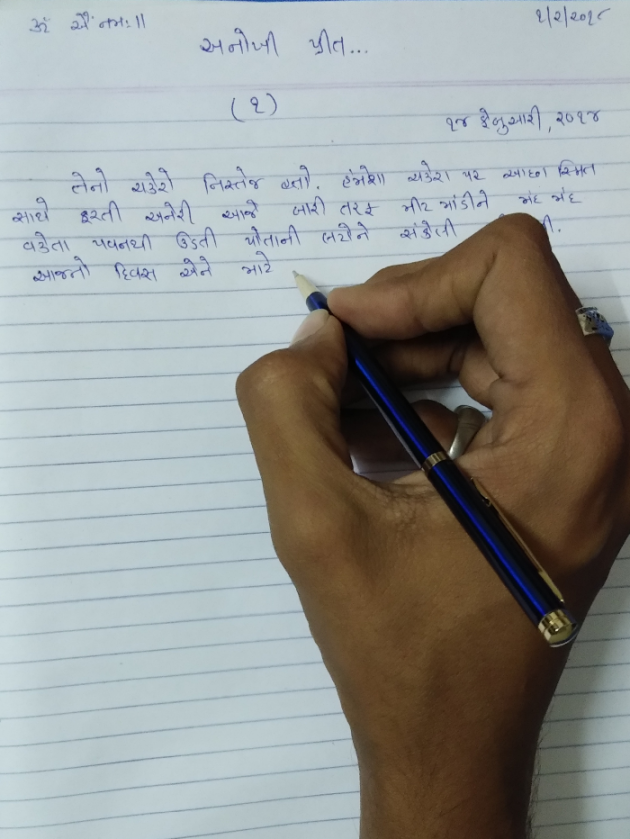 ૐ ઐં નમઃ॥
૧/૨/૨૦૧૮
અનોખી પ્રીત...
(૧)
૧૪ ફેબ્રુઆરી, ૨૦૧૪
તેનો ચહેરો નિસ્તેજ હતો. હંમેશા ચહેરા પર આછા સ્મિત
સાથે ફરતી અનેરી આજે બારી તરફ મીટ માંડીને મંદ મંદ
વહેતા પવનથી ઉડતી પોતાની લટોને સંકેલી
આજનો દિવસ એને માટે